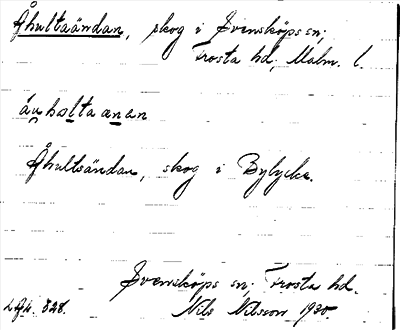 Åhultaändan, skog i Svensköps sn;
Frosta hd, Malm. l.
áuholtaanan
Åhultsändan, skog i Bylycke.
Svensköps sn; Frosta hd.
Nils Nilsson 1930.
828.